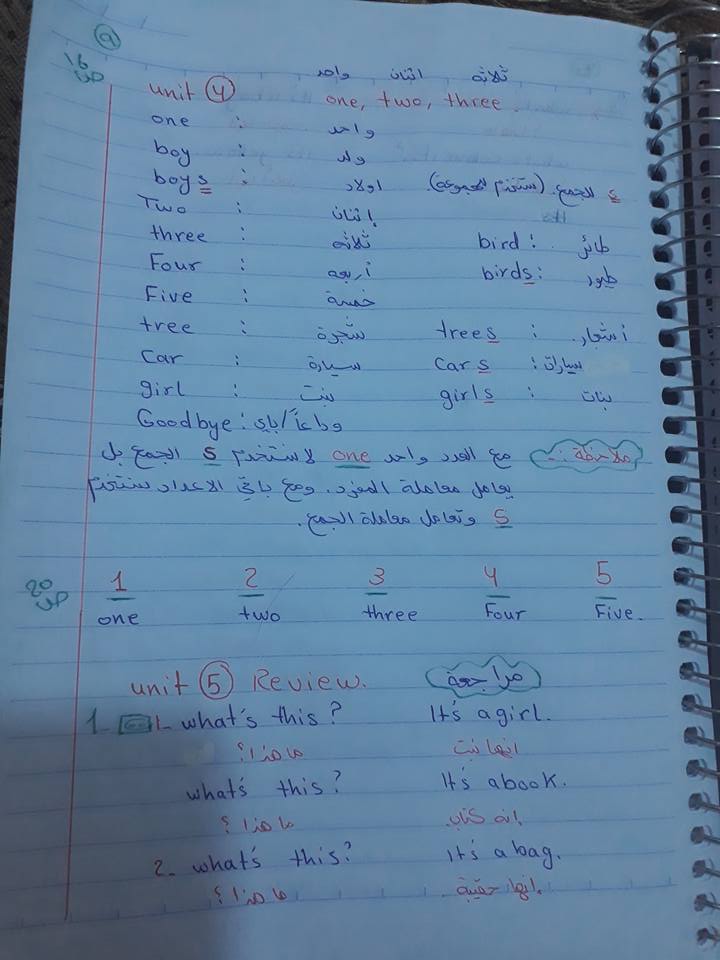 9
ص 16
واحد اثنان ثلاثه
unit 4 one, two, three.
one : واحد
boy : ولد
boys : اولاد s الجمع. (ستخدم للمجموعة).
Two : إثنان
three : ثلاثه bird : طائر
Four : أربعه birds : طيور
Five : خمسة
tree : شجرة trees : أشجار
Car : سيارة Cars : سيارات
girl : بنت girls : بنات
Goodbye : وداعاً/باي
ملاحظة :- مع العدد واحد one لا ستخدم s الجمع بل
يعامل معاملة المفرد. ومع باقي الاعداد ستخدم
s وتعامل معاملة الجمع.
ص 20
1 2 3 4 5
one two three Four Five.
unit 5 Review. مراجعة
1- 1- what's this? It's a girl.
ما هذا؟ انها بنت
what's this? It's a book.
ما هذا؟ إنه كتاب.
2- what's this? It's a bag.
ما هذا؟ إنها حقيبة.